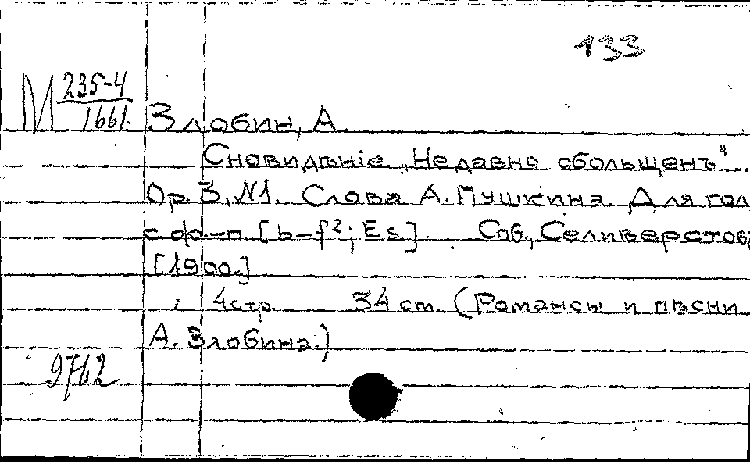 133
М 235-4
1661
Злобин, А.
Сновидѣніе „Недавно обольщенъ"
Ор. 3, №1. Слова А. Пушкина. Для гол
с ф-п [b-f²; Es]. Спб, Селиверстов,
[1900.]
4 стр. 34 cm. (Романсы и пѣсни
А. Злобина.)
9762